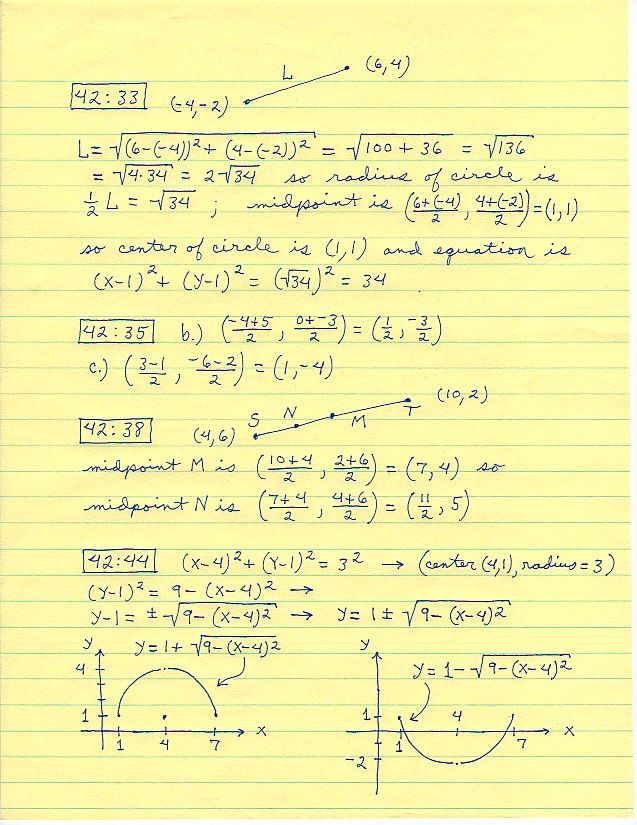 L (6,4)
42:33 (-4,-2)
L = √((6-(-4))² + (4-(-2))²) = √(100 + 36) = √136
= √(4·34) = 2√34 so radius of circle is
1/2 L = √34 ; midpoint is ((6+(-4))/2, (4+(-2))/2) = (1,1)
so center of circle is (1,1) and equation is
(x-1)² + (y-1)² = (√34)² = 34
42:35 b.) ((-4+5)/2, (0+-3)/2) = (1/2, -3/2)
c.) ((3-1)/2, (-6-2)/2) = (1,-4)
42:38 (4,6) S N M T (10,2)
midpoint M is ((10+4)/2, (2+6)/2) = (7,4) so
midpoint N is ((7+4)/2, (4+6)/2) = (11/2, 5)
42:44 (x-4)² + (y-1)² = 3² → (center (4,1), radius = 3)
(y-1)² = 9 - (x-4)² →
y-1 = ± √(9-(x-4)²) → y = 1 ± √(9-(x-4)²)
y y = 1 + √(9-(x-4)²)
4
1
1 4 7 x
y y = 1 - √(9-(x-4)²)
1 4 x
1 7
-2